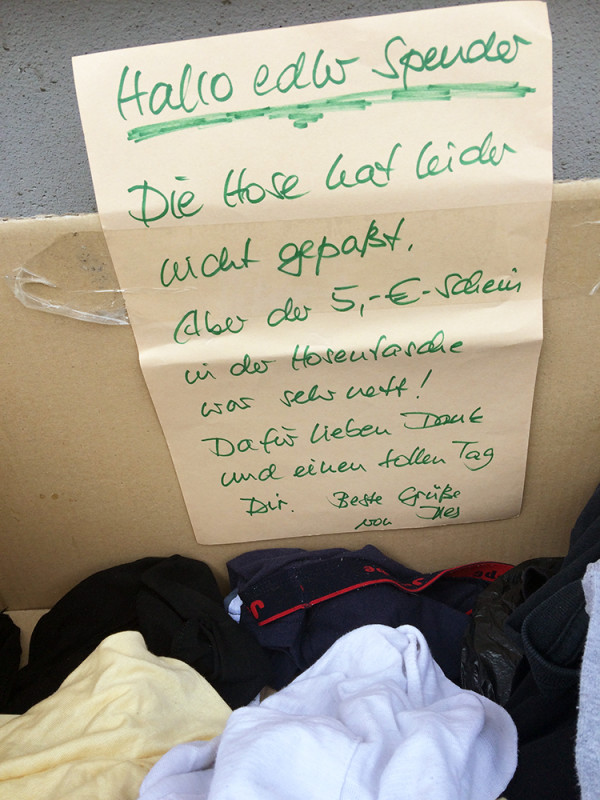 Hallo edler Spender
Die Hose hat leider
nicht gepaßt.
Aber der 5,-€-Schein
in der Hosentasche
war sehr nett!
Dafür lieben Dank
und einen tollen Tag
Dir. Beste Grüße
von